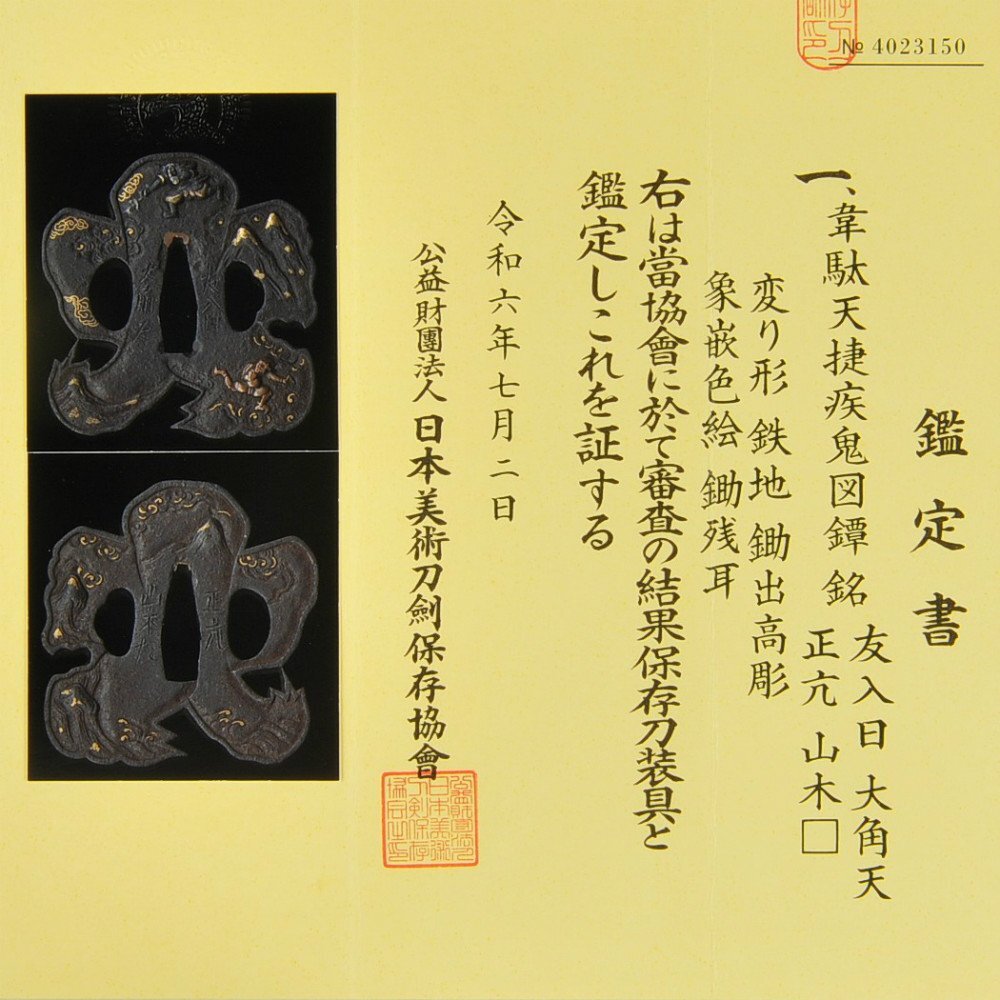 № 4023150
鑑定書
一、韋駄天捷疾鬼図鐔 銘 友入日大角天
正亢 山木□
変り形 鉄地 鋤出高彫
象嵌色絵 鋤残耳
右は當協會に於て審査の結果保存刀装具と
鑑定しこれを証する
令和六年七月二日
公益財團法人 日本美術刀劍保存協會